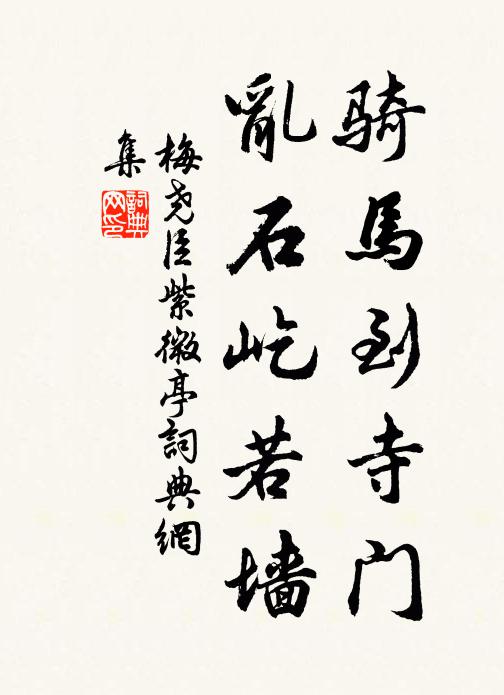 騎馬到寺门
亂石屹若墙
梅尧臣紫微亭詞典網
集
詞典
网印